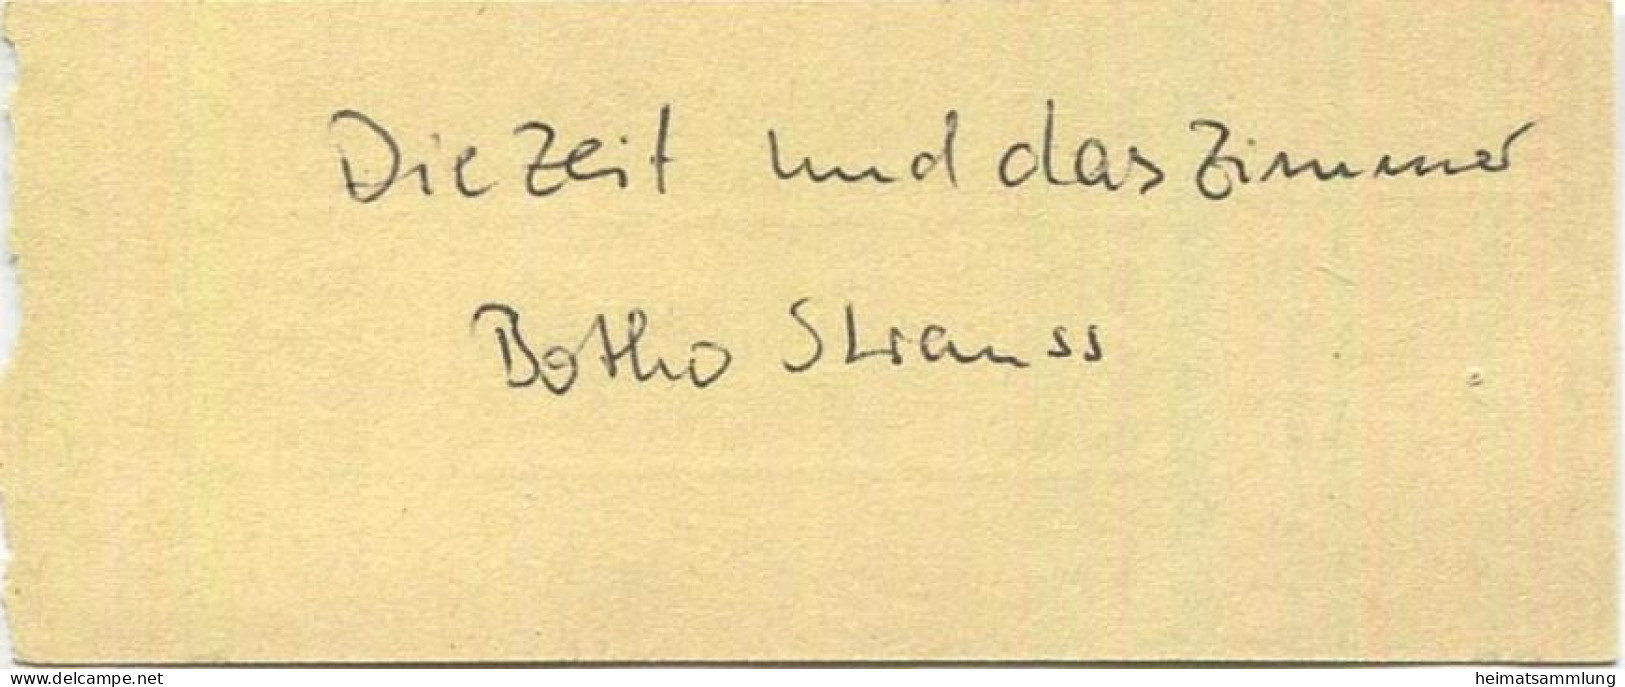 Die Zeit und das Zimmer
Botho Strauss
www.delcampe.net
heimatsammlung